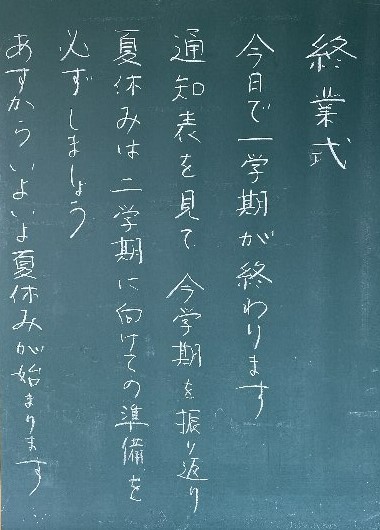 終業式
今日で一学期が終わります
通知表を見て 今学期を振り返り
夏休みは二学期に向けての準備を
必ずしましょう
あすから いよいよ夏休みが始まります…